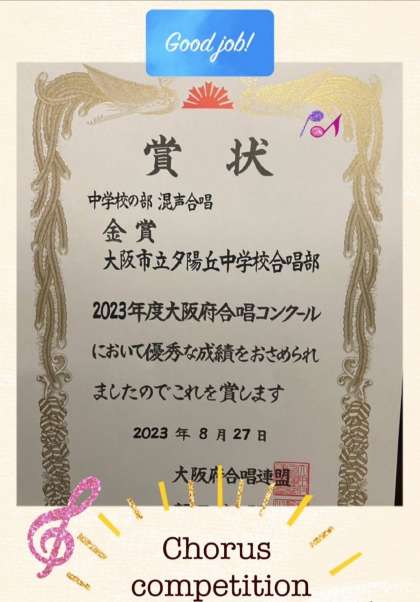 Good job!
賞状
中学校の部 混声合唱
金賞
大阪市立夕陽丘中学校合唱部
2023年度大阪府合唱コンクール
において優秀な成績をおさめられ
ましたのでこれを賞します
2023年8月27日
大阪府合唱連盟
Chorus
competition